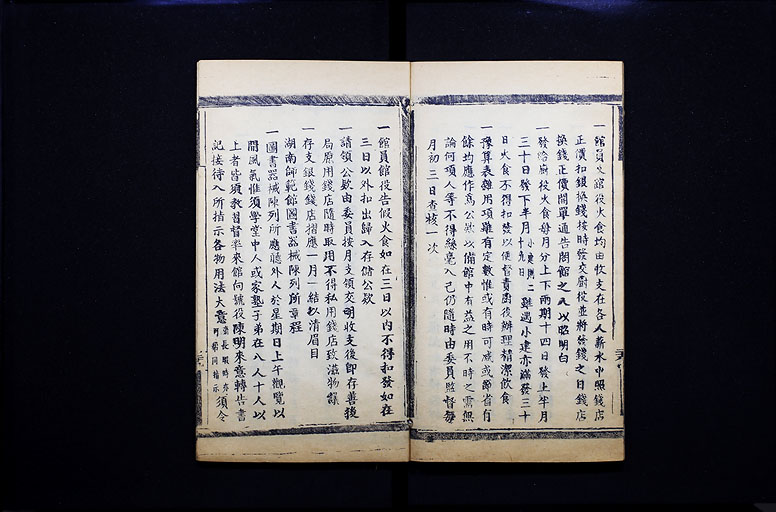 一館員火館役火食均由收支在各人薪水中照錢店
正價扣銀換錢按時發交廚役並將發錢之日錢店
換錢正價開單通告閤館之人以昭明白
一發給廚役火食每月分上下兩期十四日發上半月
三十日發下半月小建則二十九日發雖遇小建亦滿發三十
日火食不得扣發以便督責廚役辦理精潔飲食
一豫算表雜用項雖有定數惟或有時可減或節省有
餘均應作為公欵以備館中有益之用不時之需無
論何項人等不得絲毫入己仍隨時由委員監督每
月初三日查核一次
一館員館役告假火食如在三日以內不得扣發如在
三日以外扣出歸入存儲公欵
一請領公欵由委員按月支領交明收支後卽存善後
局原用錢店隨時取用不得私用錢店致滋物議
一存支銀錢錢店摺應一月一結以清眉目
湖南師範館圖書器械陳列所章程
一圖書器械陳列所應聽外人於星期日上午觀覽以
開風氣惟須學堂中人或家塾子弟在八人十人以
上者皆須教習督率來館向號役陳明來意轉告書
記接待入所指示各物用法大意須令